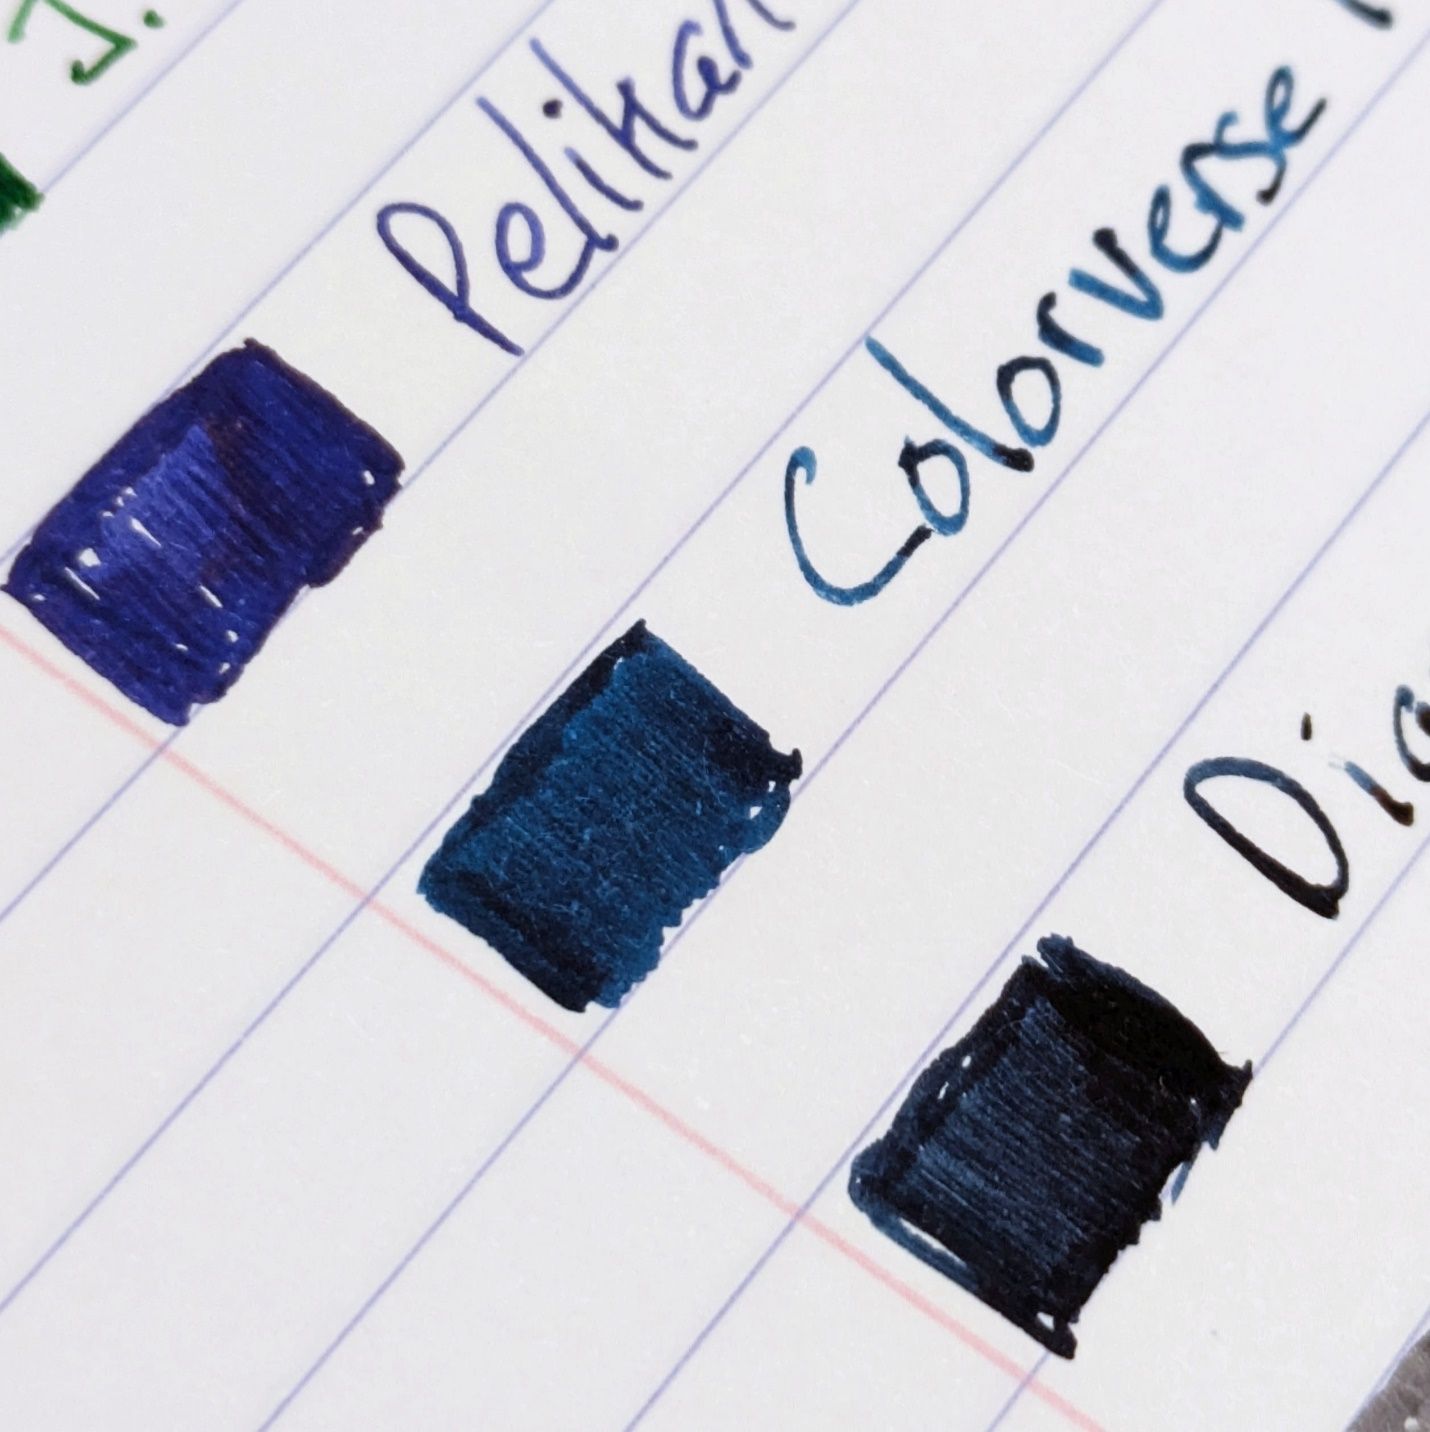 J.
Pelikan
Colorverse
Dia